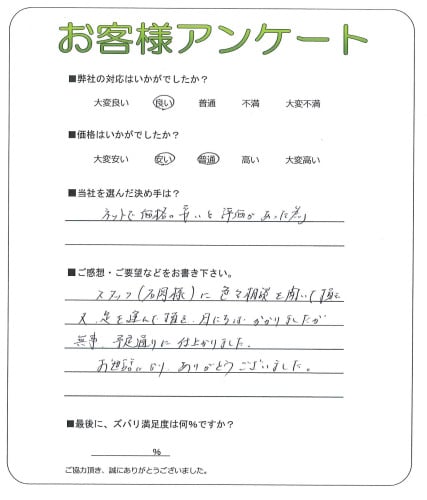 お客様アンケート
■弊社の対応はいかがでしたか？
大変良い 良い 普通 不満 大変不満
■価格はいかがでしたか？
大変安い 安い 普通 高い 大変高い
■当社を選んだ決め手は？
ネットで価格の安いと評価があった為
■ご感想・ご要望などをお書き下さい。
スタッフ（石岡様）に色々相談を聞いて頂き
又、足を運んで頂き、月にちは かかりましたが
無事、予定通りに仕上がりました。
お世話になり、ありがとうございました。
■最後に、ズバリ満足度は何％ですか？
％
ご協力頂き、誠にありがとうございました。